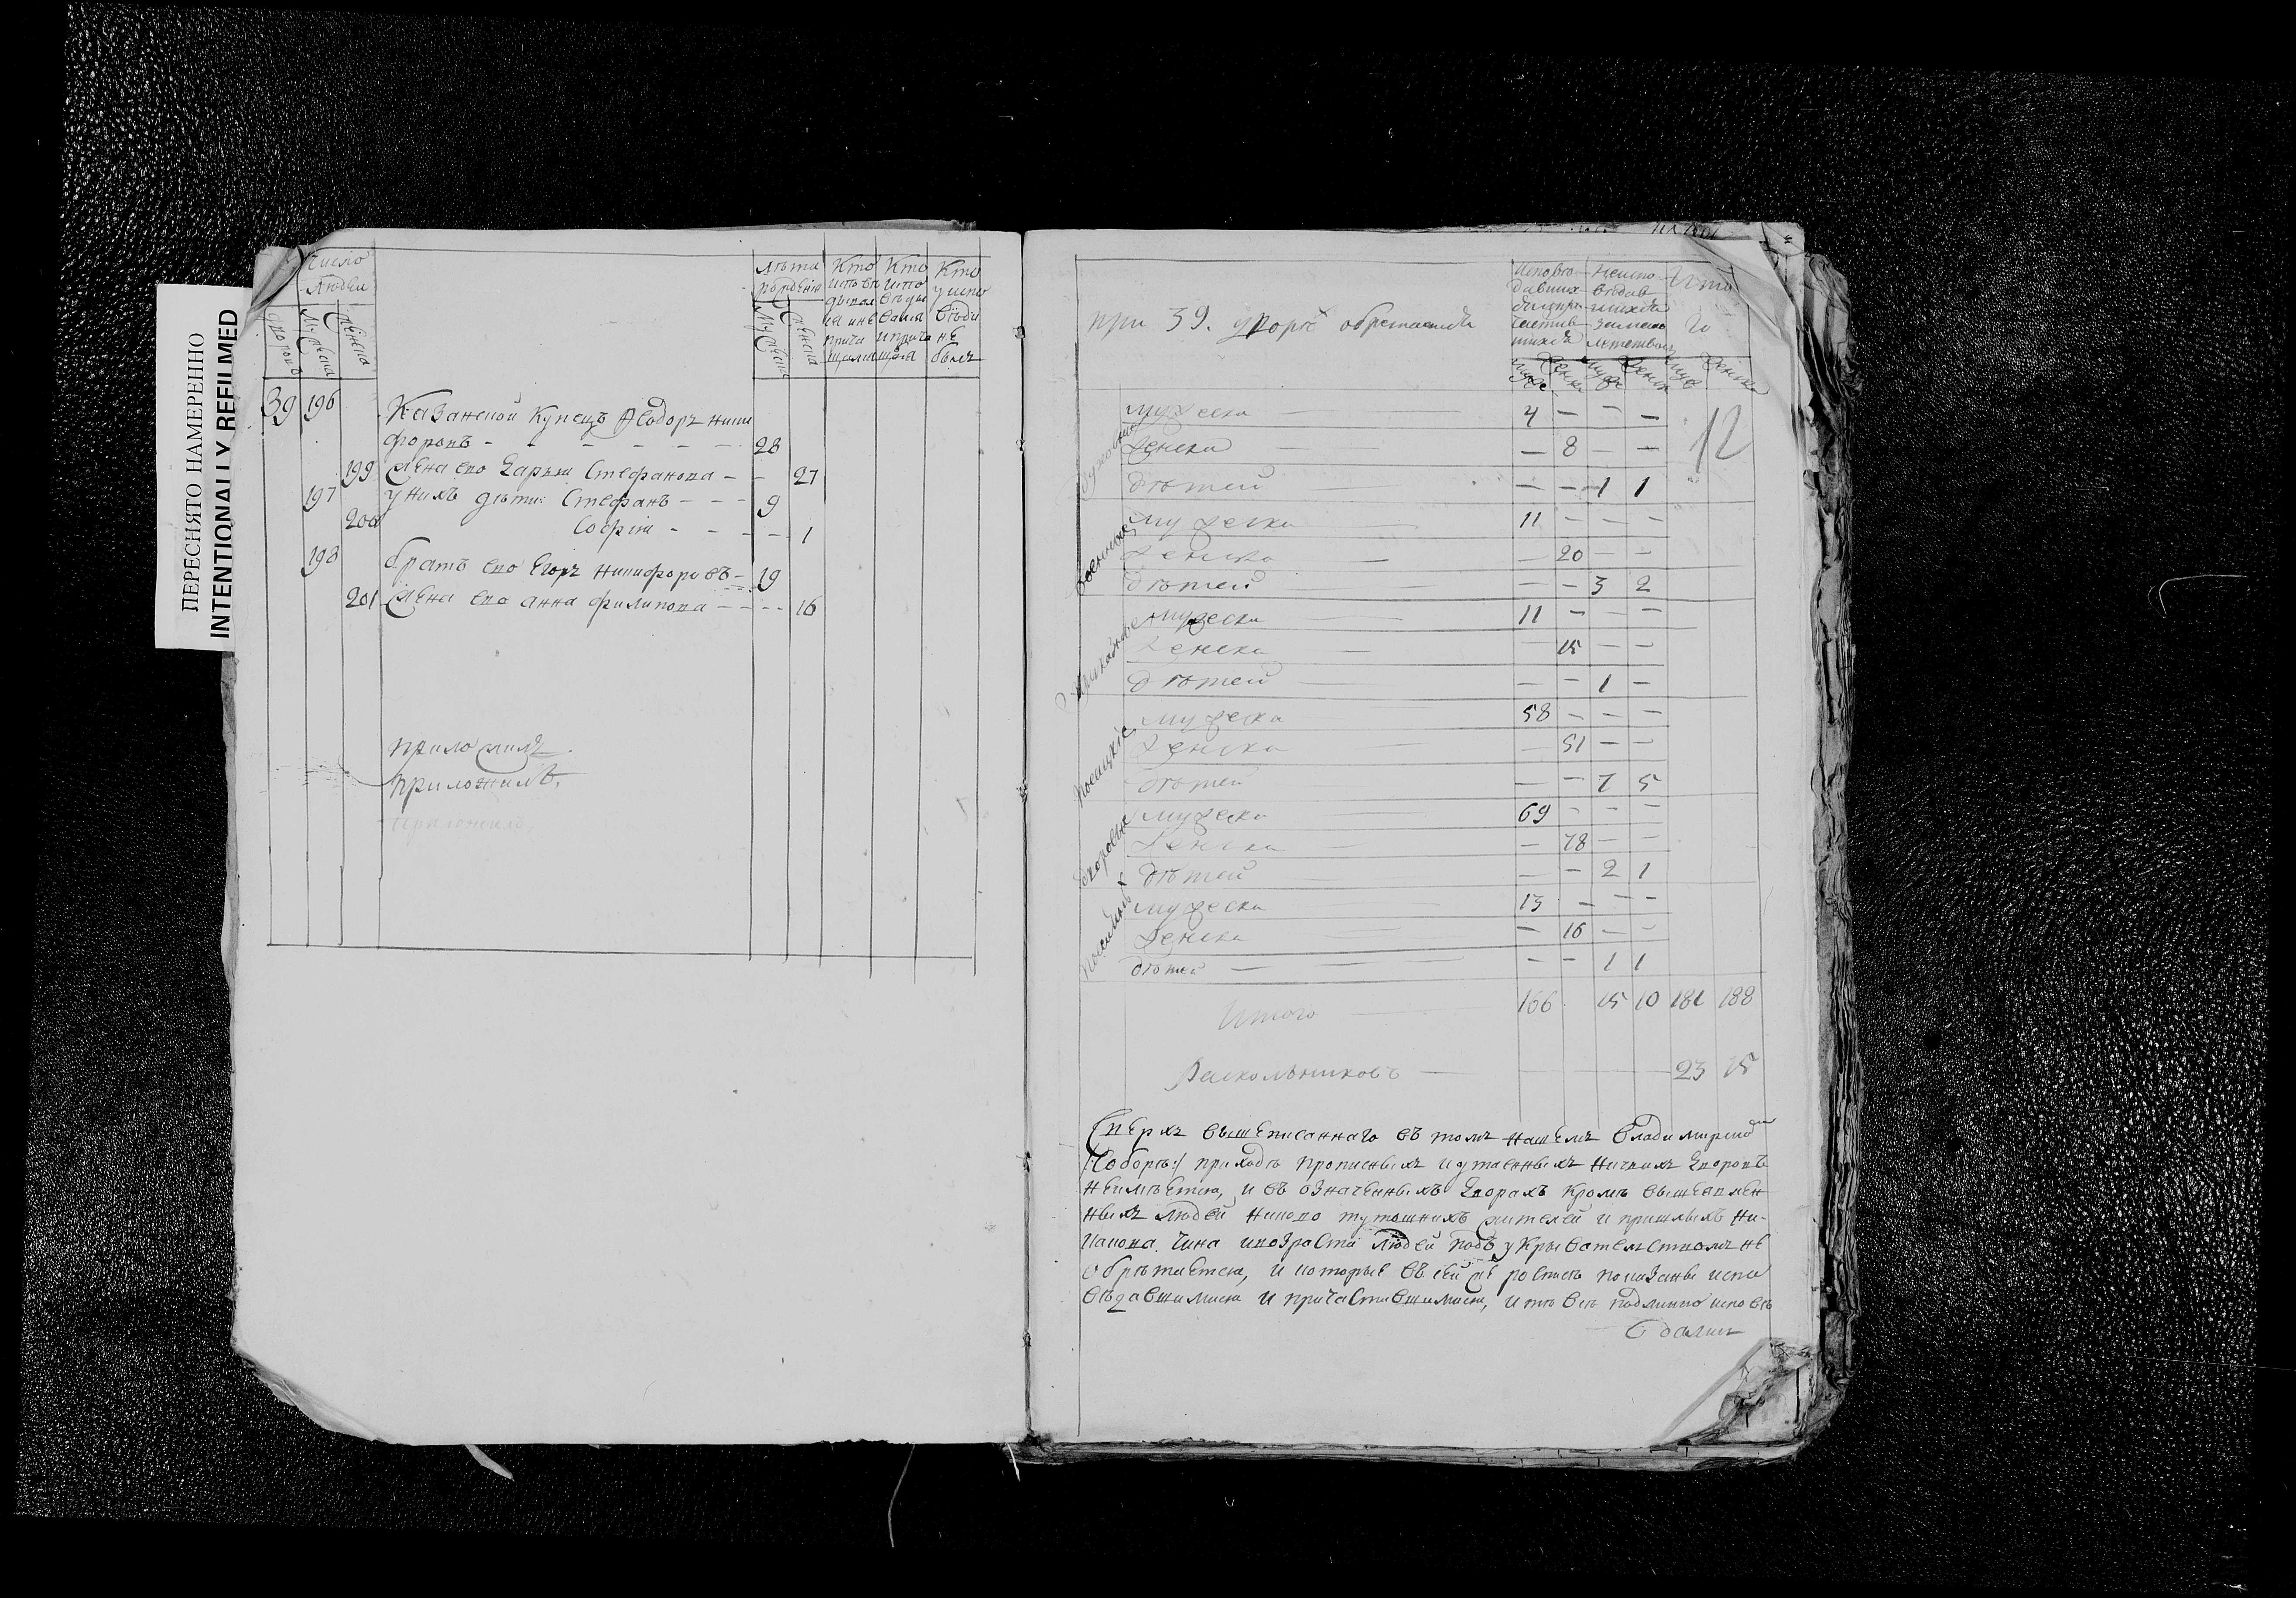 ПЕРЕСНЯТО НАМЕРЕННО
INTENTIONALLY REFILMED
Число людей
дворовъ
Мужеска
Женска
лѣта рожденiя
Мужеска
Женска
Кто
Кто
Кто
не былъ
39 196 Казанской Купецъ Ѳеодоръ Ники
форовъ - - - - - 28
199 жена ево Дарья Стефанова - - 27
197 у нихъ дѣти: Стефанъ - - - 9
200 Софiя - - - - 1
198 братъ ево Егоръ Никифоровъ - 19
201 жена ево анна филипова - - - - 16
приложилъ
приложилъ
приложилъ
при 39. дворѣх обретается
Исповѣдавшихся и причастившихся
неисповедавшихся за малолетством
Итого
муже женс муже женс муже женска
Духовные
мужеска — 4 — — —
женска — — 8 — —
дѣтей — — 1 1
12
военные
мужеска — 11 — — —
женска — — 20 — —
дѣтей — — 3 2
приказные
мужеска — 11 — — —
женска — — 15 — —
дѣтей — — 1 —
посацкiе
мужеска 58 — — —
женска — — 51 — —
дѣтей — — 7 5
дворовые
мужеска 69 — — —
женска — — 78 — —
дѣтей — — 2 1
мужеска 13 — — —
женска — 16 — —
дѣтей — — — 1 1
Итого — 166 15 10 181 188
Раскольниковъ — 23 15
Сверхъ вышеписаннаго въ томъ нашемъ Владимирской
/:Соборѣ:/ приходѣ прописныхъ и утаенныхъ никакихъ дворовъ
неимѣется, и въ означенныхъ дворахъ кромѣ вышеявлен
ныхъ людей никово тутошнихъ жителей и пришлыхъ ни-
какова чина и возраста людей подъ укрывательствомъ не
обрѣтается, и которые въ сей же росписѣ показаны испо
вѣдавшимися и причастившимися, и тѣ всѣ подлинно исповѣ
дались